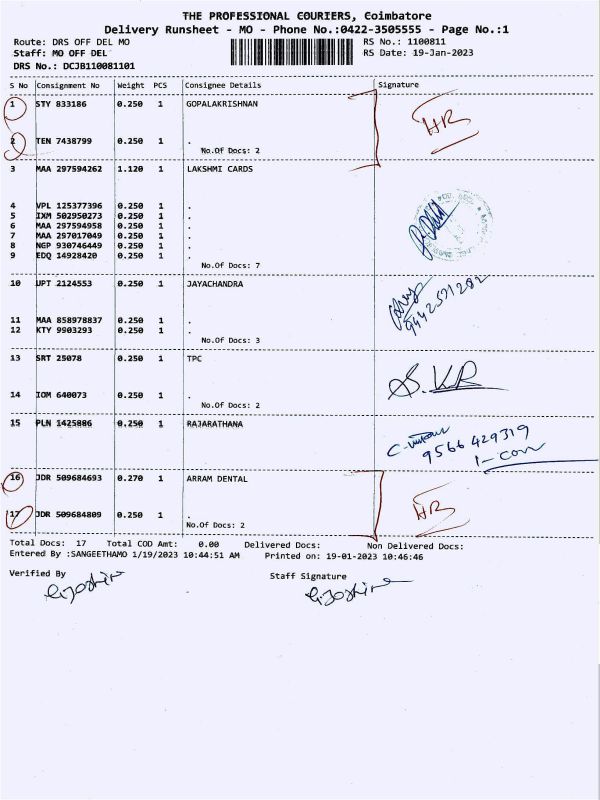 THE PROFESSIONAL COURIERS, Coimbatore
Delivery Runsheet - MO - Phone No.:0422-3505555 - Page No.:1
Route: DRS OFF DEL MO RS No.: 1100811
Staff: MO OFF DEL RS Date: 19-Jan-2023
DRS No.: DCJB110081101
S No Consignment No Weight PCS Consignee Details Signature
1 STY 833186 0.250 1 GOPALAKRISHNAN
HR
2 TEN 7438799 0.250 1 .
No.Of Docs: 2
3 MAA 297594262 1.120 1 LAKSHMI CARDS
4 VPL 125377396 0.250 1 .
5 IXM 502950273 0.250 1 .
6 MAA 297594958 0.250 1 .
7 MAA 297017049 0.250 1 .
8 NGP 930746449 0.250 1 .
9 EDQ 14928420 0.250 1 .
No.Of Docs: 7
10 UPT 2124553 0.250 1 JAYACHANDRA
9442571282
11 MAA 858978837 0.250 1 .
12 KTY 9903293 0.250 1 .
No.Of Docs: 3
13 SRT 25078 0.250 1 TPC
S.KR
14 IOM 640073 0.250 1 .
No.Of Docs: 2
15 PLN 1425886 0.250 1 RAJARATHANA
9566429319
16 JDR 509684693 0.270 1 ARRAM DENTAL
HR
17 JDR 509684809 0.250 1 .
No.Of Docs: 2
Total Docs: 17 Total COD Amt: 0.00 Delivered Docs: Non Delivered Docs:
Entered By :SANGEETHAMO 1/19/2023 10:44:51 AM Printed on: 19-01-2023 10:46:46
Verified By Staff Signature